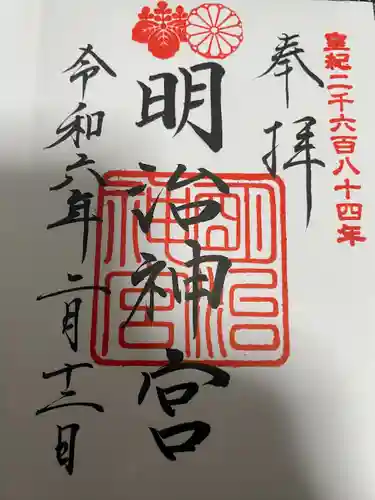 皇紀二千六百八十四年
奉拝
明治神宮
明治
神宮
令和六年二月十二日